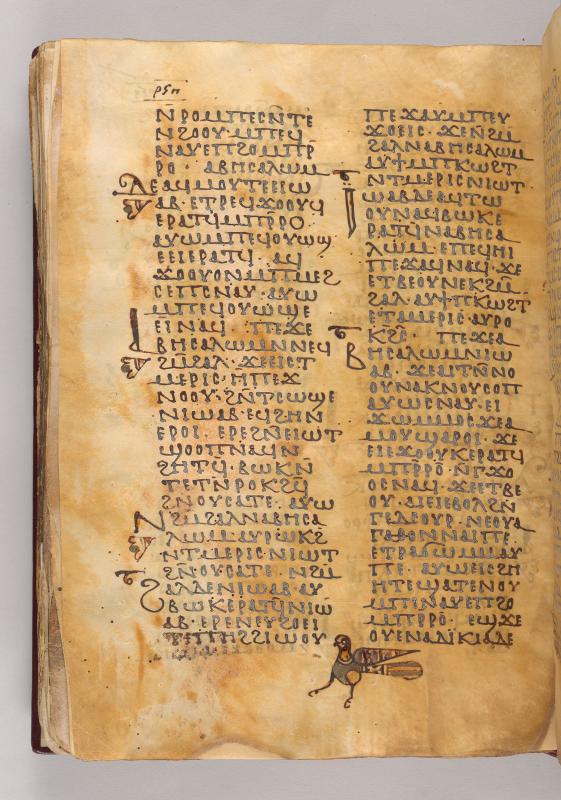 ⲣϥⲏ
ⲛⲣⲟⲙⲡⲉⲥⲛⲧⲉ
ⲛϩⲟⲟⲩ· ⲙⲡⲉϥ
ⲛⲁⲩⲉⲡϩⲟⲙⲡⲣ
ⲣⲟ· ⲁⲃⲏⲥⲁⲗⲱⲙ
ⲇⲉⲁϥⲙⲟⲩⲧⲉⲉⲓⲱ
ⲁⲃ· ⲉⲧⲣⲉϥϫⲟⲟⲩϥ
ⲉⲣⲁⲧϥⲙⲡⲣⲣⲟ
ⲁⲩⲱⲙⲡⲉϥⲟⲩⲱϣ
ⲉⲉⲓⲉⲣⲁⲧϥ· ⲁϥ
ϫⲟⲟⲩⲟⲛⲙⲡⲙⲉϩ
ⲥⲉⲡⲥⲛⲁⲩ· ⲁⲩⲱ
ⲙⲡⲉϥⲟⲩⲱϣⲉ
ⲉⲓⲛⲁϥ· ⲡⲉϫⲉ
ⲁⲃⲏⲥⲁⲗⲱⲙⲛⲛⲉϥ
ϩⲙϩⲁⲗ· ϫⲉⲉⲓⲥⲧ
ⲙⲉⲣⲓⲥ· ⲏⲡⲉϫ
ⲛⲟⲟⲩ· ϩⲛⲧⲥⲱϣⲉ
ⲛⲓⲱⲁⲃ· ⲉϥϩⲏⲛ
ⲉⲣⲟⲓ· ⲉⲣⲉϩⲛⲉⲓⲱⲧ
ϣⲟⲟⲡⲛⲁϥⲛ
ϩⲏⲧϥ· ⲃⲱⲕⲛ
ⲧⲉⲧⲛⲣⲟⲕϩϥ
ϩⲛⲟⲩⲥⲁⲧⲉ· ⲁⲩⲱ
ⲛϩⲙϩⲁⲗⲛⲁⲃⲏⲥⲁ
ⲗⲱⲙⲁⲩⲣⲱⲕϩ
ⲛⲧⲙⲉⲣⲓⲥ· ⲛⲓⲱⲧ
ϩⲛⲟⲩⲥⲁⲧⲉ· ⲛϩⲙ
ϩⲁⲗⲇⲉⲛⲓⲱⲁⲃ· ⲁⲩ
ⲃⲱⲕⲉⲣⲁⲧϥⲛⲓⲱ
ⲁⲃ· ⲉⲣⲉⲛⲉⲩϩⲟⲉⲓ
ⲧⲉⲡⲏϩϩⲓⲱⲟⲩ
ⲡⲉϫⲁⲩⲙⲡⲉⲩ
ϫⲟⲉⲓⲥ· ϫⲉⲛϩⲙ
ϩⲁⲗⲛⲁⲃⲏⲥⲁⲗⲱⲙ
ⲁⲩϯⲙⲡⲕⲱϩⲧ
ⲛⲧⲙⲉⲣⲓⲥⲛⲓⲱⲧ
ⲓⲱⲁⲃⲇⲉⲁϥⲧⲱ
ⲟⲩⲛⲁϥⲃⲱⲕⲉ
ⲣⲁⲧϥⲛⲁⲃⲏⲥⲁ
ⲗⲱⲙ· ⲉⲡⲉϥⲏⲓ
ⲡⲉϫⲁϥⲛⲁϥ· ϫⲉ
ⲉⲧⲃⲉⲟⲩⲛⲉⲕϩⲙ
ϩⲁⲗ· ⲁⲩϯⲡⲕⲱϩⲧ
ⲉⲧⲁⲙⲉⲣⲓⲥ· ⲁⲩⲣⲟ
ⲕϩⲥ· ⲡⲉϫⲉⲁ
ⲃⲏⲥⲁⲗⲱⲙⲛⲓⲱ
ⲁⲃ· ϫⲉⲁⲓⲧⲛⲛⲟ
ⲟⲩⲛⲁⲕⲛⲟⲩⲥⲟⲡ
ⲁⲩⲱⲥⲛⲁⲩ· ⲉⲓ
ϫⲱⲙⲙⲟⲥ· ϫⲉⲁ
ⲙⲟⲩϣⲁⲣⲟⲓ· ϫⲉ
ⲉⲓⲉϫⲟⲟⲩⲕⲉⲣⲁⲧϥ
ⲙⲡⲣⲣⲟ· ⲛⲅϫⲟ
ⲟⲥⲛⲁϥ· ϫⲉⲉⲧⲃⲉ
ⲟⲩ· ⲁⲓⲉⲓⲉⲃⲟⲗϩⲛ
ⲅⲉⲇⲥⲟⲩⲣ· ⲛⲉⲟⲩⲁ
ⲅⲁⲑⲟⲛⲛⲁⲓⲡⲉ
ⲉⲧⲣⲁϭⲱⲙⲙⲁⲩ
ⲡⲉ· ⲁⲩⲱⲉⲓⲥϩⲏ
ⲏⲧⲉϣⲁⲧⲉⲛⲟⲩ
ⲙⲡⲓⲛⲁⲩⲉⲡϩⲟ
ⲙⲡⲣⲣⲟ· ⲉϣϫⲉ
ⲟⲩⲉⲛⲁⲇⲓⲕⲓⲁⲇⲉ